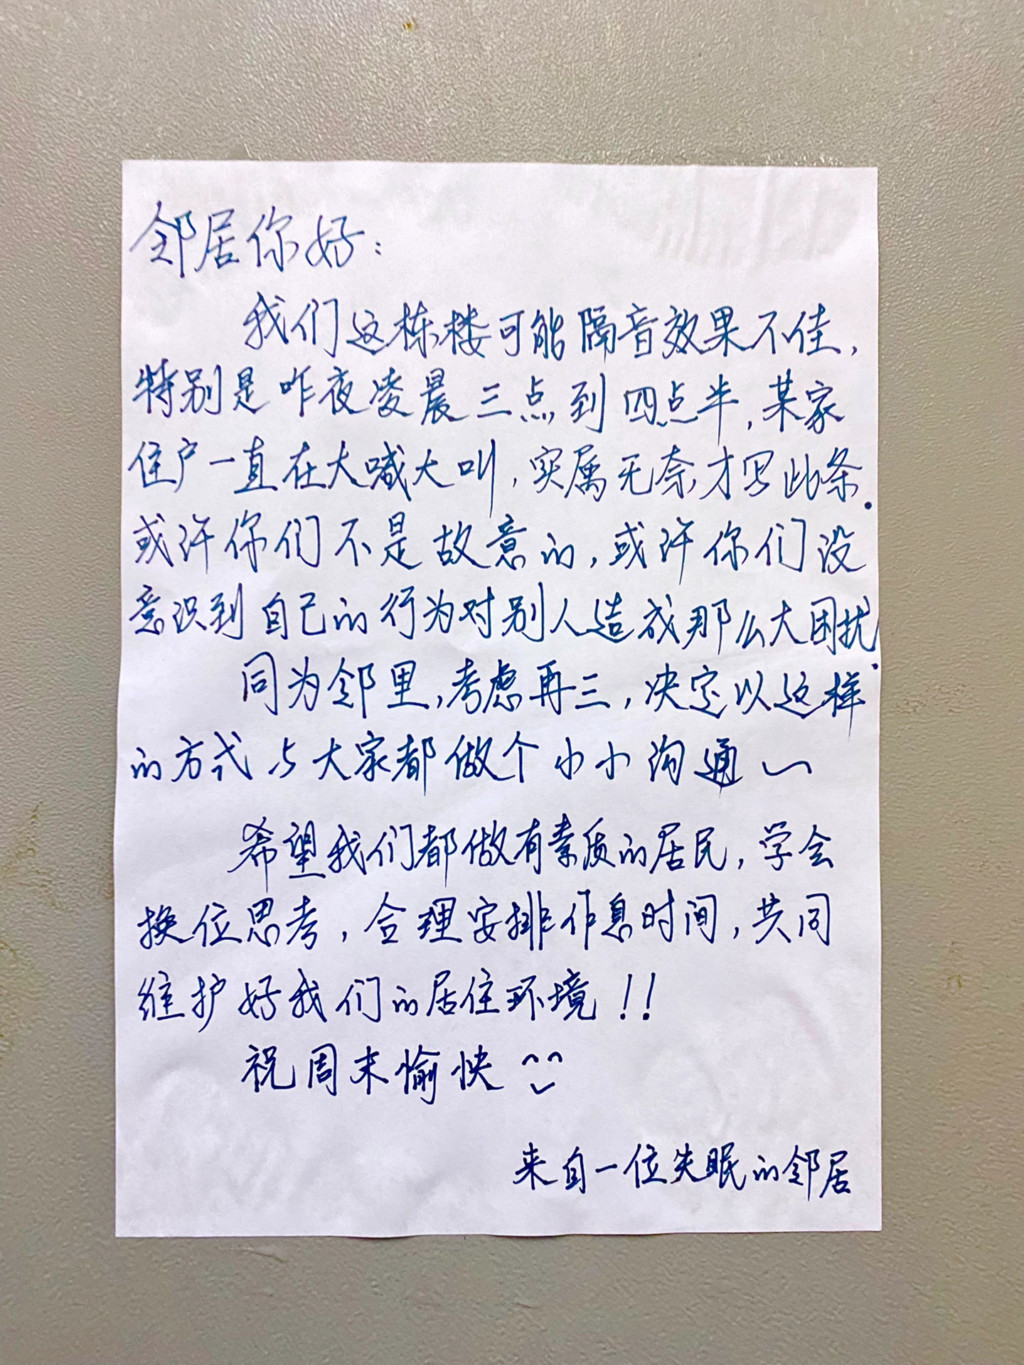 邻居你好：
我们这栋楼可能隔音效果不佳，
特别是昨夜凌晨三点到四点半，某家
住户一直在大喊大叫，实属无奈才写此条.
或许你们不是故意的，或许你们没
意识到自己的行为对别人造成那么大困扰.
同为邻里，考虑再三，决定以这样
的方式与大家都做个小小沟通~
希望我们都做有素质的居民，学会
换位思考，合理安排作息时间，共同
维护好我们的居住环境！！
祝周末愉快 ^^
来自一位失眠的邻居